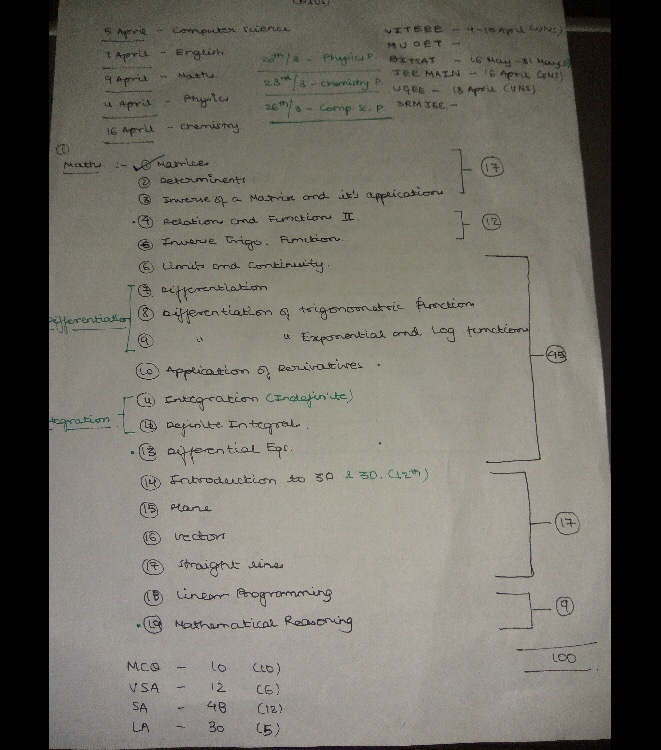 5 April - Computer Science
7 April - English
9 April - Maths
11 April - Physics
16 April - Chemistry
20th/3 - Physics P.
23rd/3 - Chemistry P.
26th/3 - Comp. Sc. P.
VITEEE - 4-15 April (UNS)
MU OET -
BITSAT - 16 May - 31 May
JEE MAIN - 16 April (UNS)
UGEE - 18 April (UNS)
SRMJEE -
①
Maths :- ① Matrices
② Determinents
③ Inverse of a Matrix and it's application
17
④ Relation and Function II
⑤ Inverse Trigo. Function.
12
⑥ Limits and Continuity.
Differentiation
⑦ Differentiation
⑧ Differentiation of trigonometric function
⑨ " " Exponential and Log functions
⑩ Application of Derivatives
45
Integration
⑪ Integration (Indefinite)
⑫ Definite Integral.
⑬ Differential Eqs.
⑭ Introduction to 3D & 3D. (12th)
⑮ Plane
⑯ Vectors
⑰ Straight lines
17
⑱ Linear Programming
⑲ Mathematical Reasoning
9
100
MCQ - 10 (10)
VSA - 12 (6)
SA - 48 (12)
LA - 30 (5)